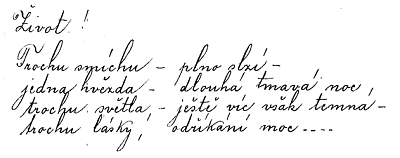 Život!
Trochu smíchu – plno slzí –
jedna hvězda – dlouhá, tmavá noc,
trochu světla, – ještě víc však temna –
trochu lásky, odříkání moc ....